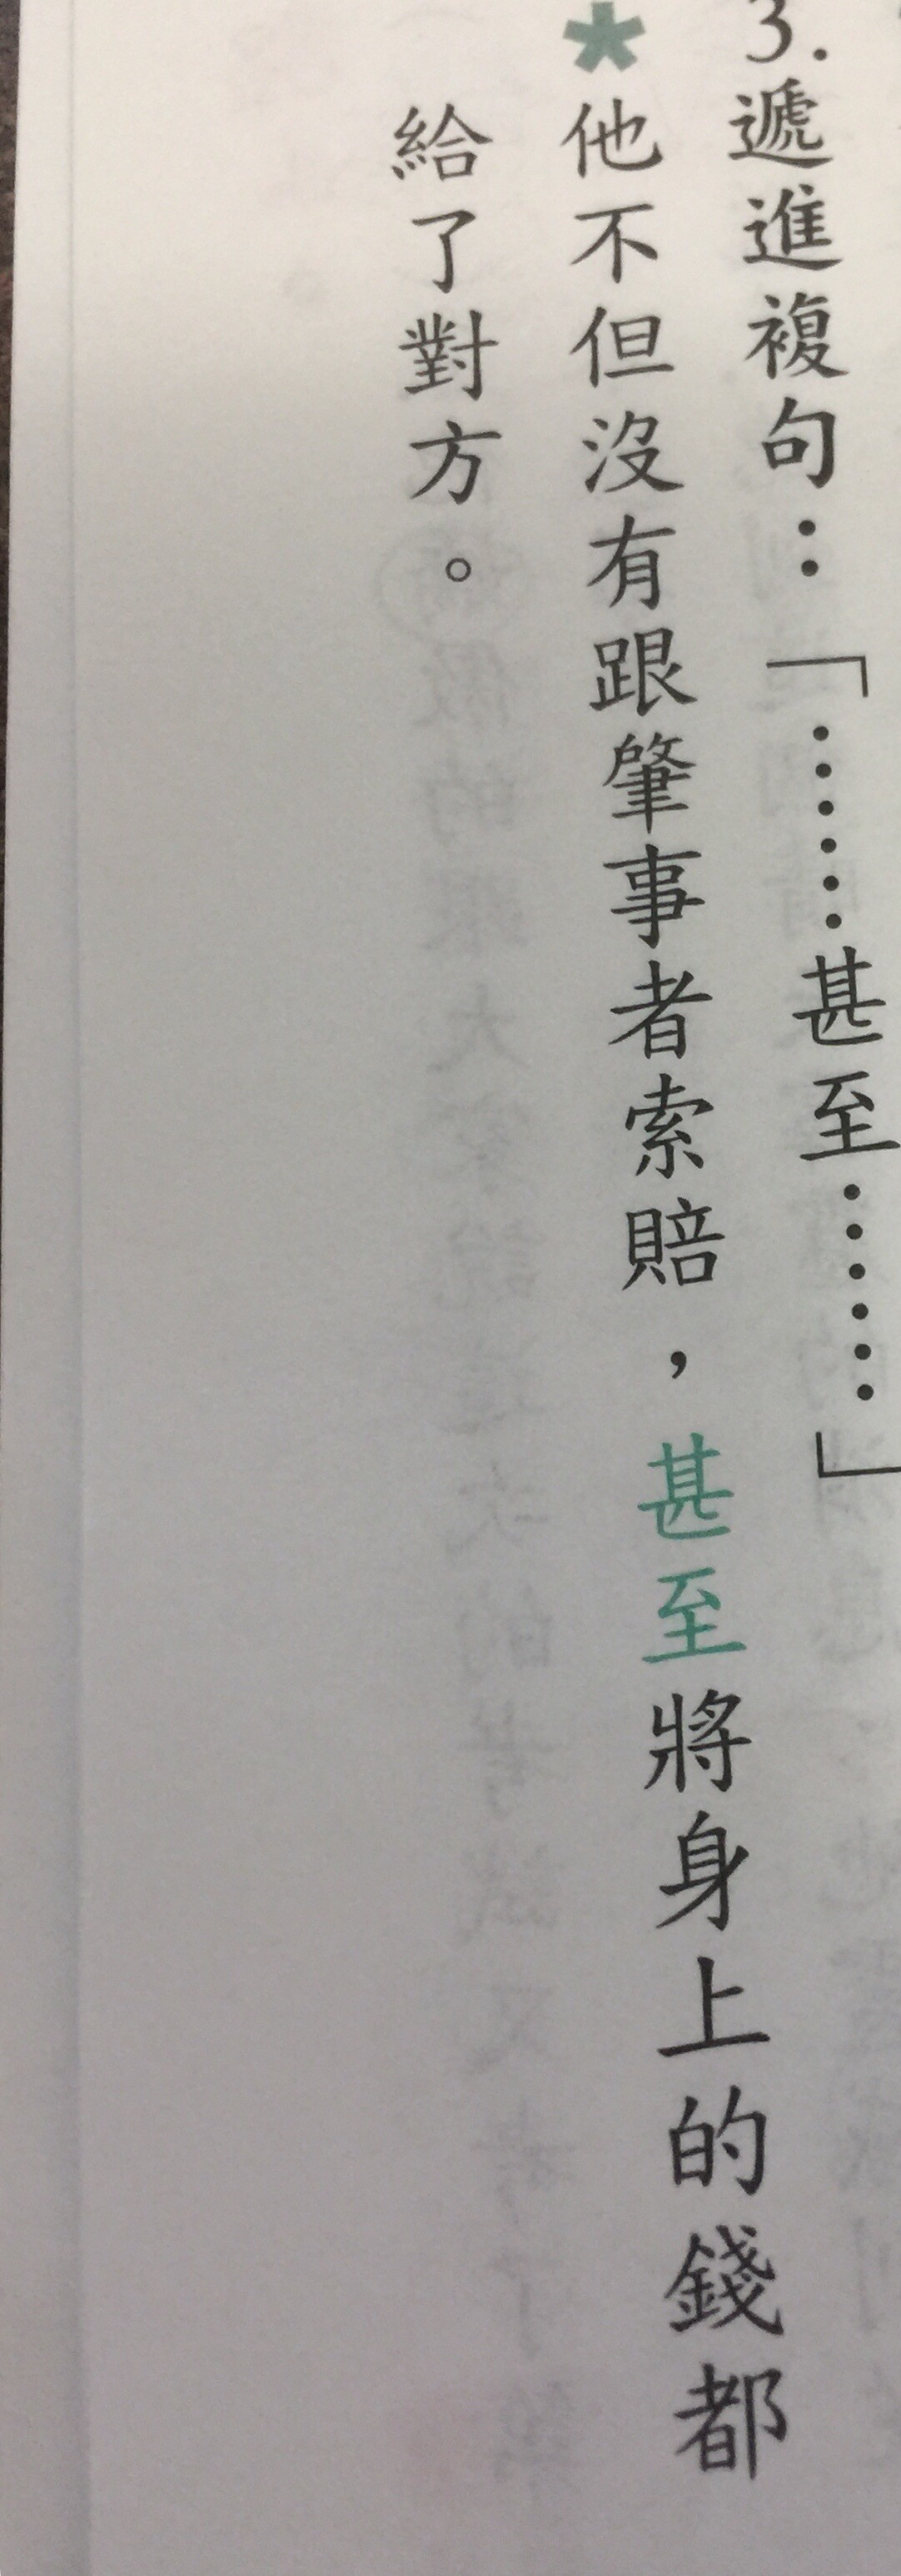 3.遞進複句：「……甚至……」
*他不但沒有跟肇事者索賠，甚至將身上的錢都
給了對方。